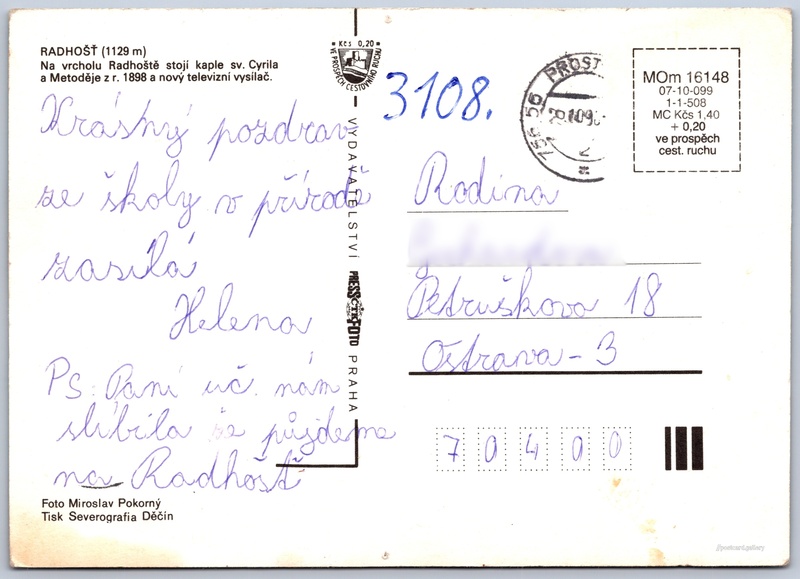 RADHOŠŤ (1129 m)
Na vrcholu Radhoště stojí kaple sv. Cyrila
a Metoděje z r. 1898 a nový televizní vysílač.
Krásný pozdrav
ze školy v přírodě
zasílá
Helena
Ps: Paní uč. nám
slíbila že půjdeme
na Radhošť
Foto Miroslav Pokorný
Tisk Severografia Děčín
Kčs 0,20
VE PROSPĚCH CESTOVNÍHO RUCHU
VYDAVATELSTVÍ
PRESSFOTO
PRAHA
3108.
756 56 PROST
MOm 16148
07-10-099
1-1-508
MC Kčs 1,40
+ 0,20
ve prospěch
cest. ruchu
Rodina
Petruškova 18
Ostrava - 3
70400